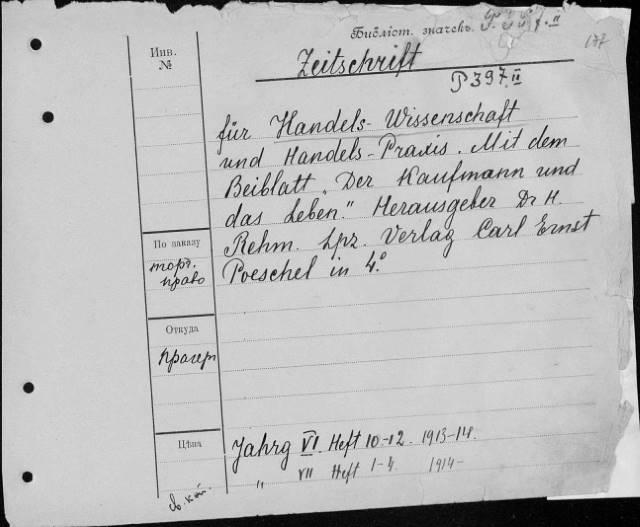 Библіот. значекъ
177
Инв.
№
Zeitschrift
P 397.II
für Handels-Wissenschaft
und Handels-Praxis. Mit dem
Beiblatt „Der Kaufmann und
das Leben." Herausgeber Dr H.
Rehm. Lpz. Verlag Carl Ernst
Poeschel in 4°.
По заказу
торг.
право
Откуда
Прагеръ
Цѣна
Jahrg VI. Heft 10-12. 1913-14.
„ VII Heft 1-4. 1914-